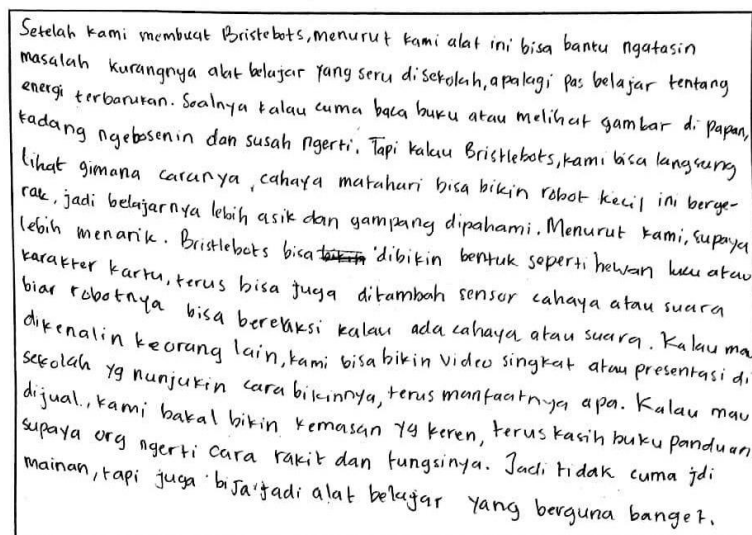 Setelah kami membuat Bristebots, menurut kami alat ini bisa bantu ngatasin
masalah kurangnya alat belajar yang seru disekolah, apalagi pas belajar tentang
energi terbarukan. Soalnya kalau cuma baca buku atau melihat gambar di papan,
kadang ngebosenin dan susah ngerti. Tapi kalau Bristlebots, kami bisa langsung
lihat gimana caranya, cahaya matahari bisa bikin robot kecil ini berge-
rak, jadi belajarnya lebih asik dan gampang dipahami. Menurut kami, supaya
lebih menarik. Bristlebots bisa dibikin bentuk seperti hewan lucu atau
karakter kartu, terus bisa juga ditambah sensor cahaya atau suara
biar robotnya bisa bereaksi kalau ada cahaya atau suara. Kalau ma
dikenalin keorang lain, kami bisa bikin video singkat atau presentasi di
sekolah yg nunjukin cara bikinnya, terus manfaatnya apa. Kalau mau
dijual, kami bakal bikin kemasan yg keren, terus kasih buku panduan
supaya org ngerti cara rakit dan fungsinya. Jadi tidak cuma jdi
mainan, tapi juga bisa jadi alat belajar yang berguna banget.